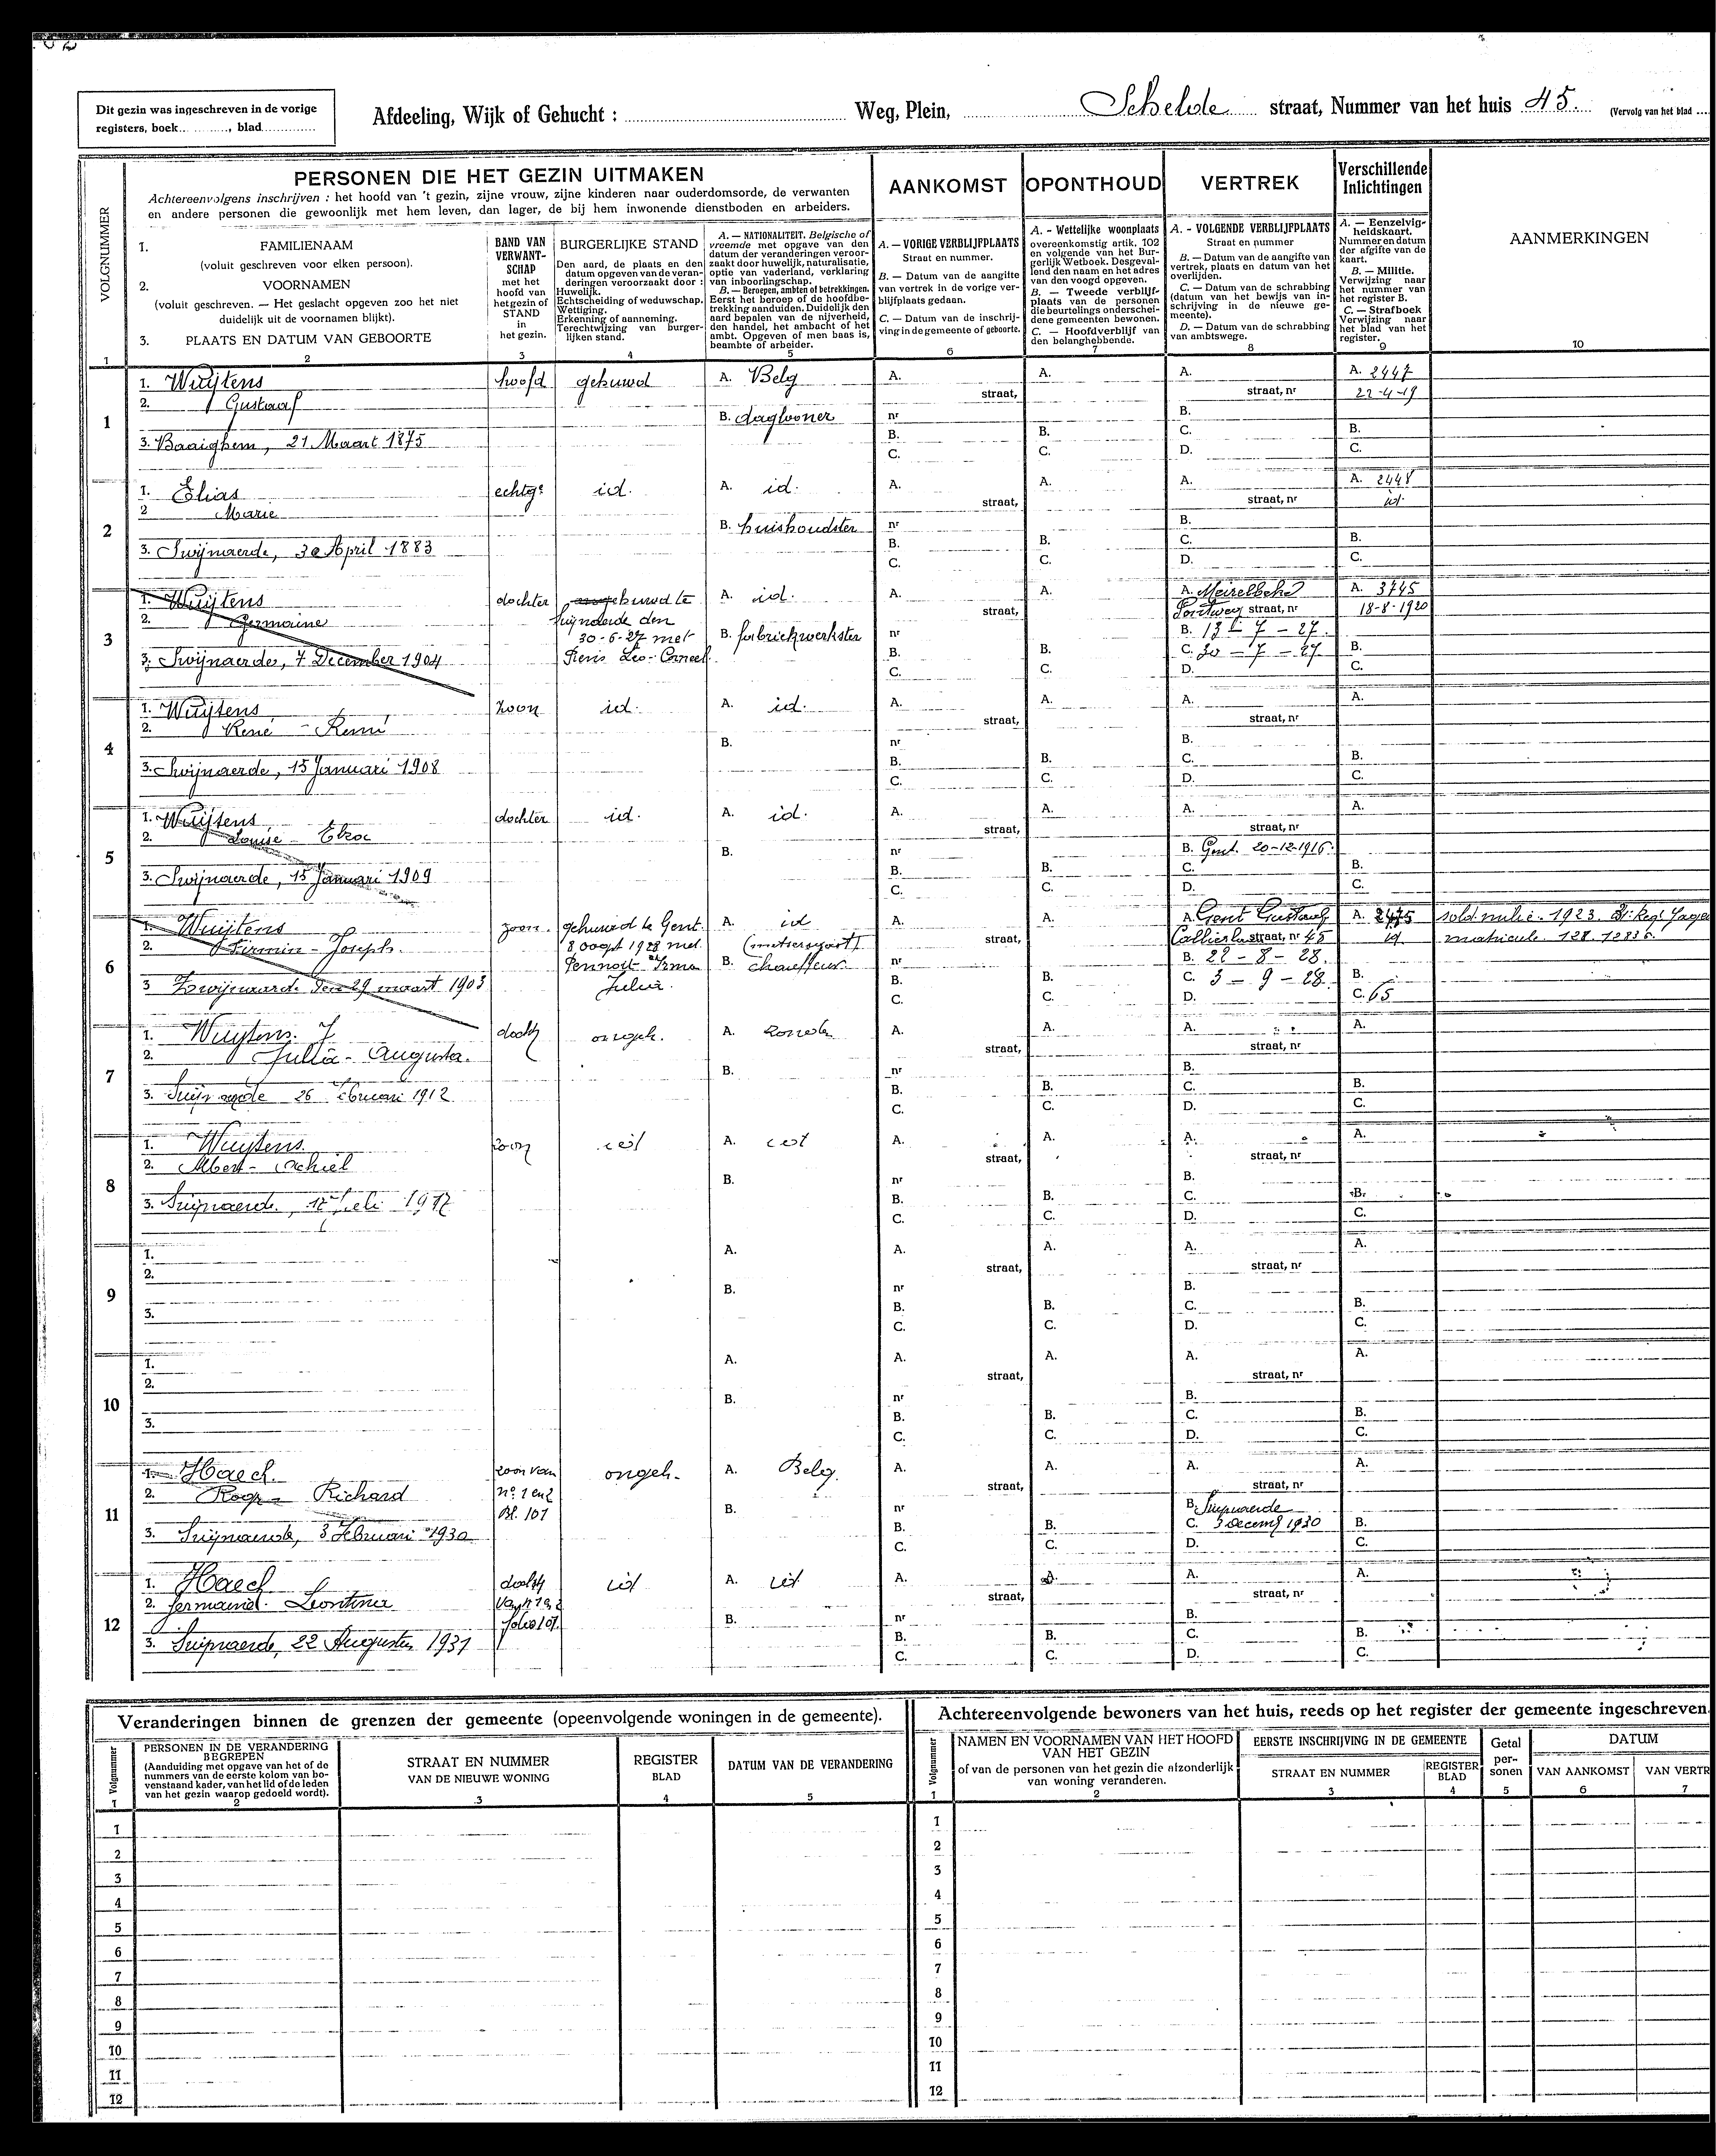 Dit gezin was ingeschreven in de vorige
registers, boek............, blad..............
Afdeeling, Wijk of Gehucht : ........ Weg, Plein, ........ Schelde straat, Nummer van het huis 45. (Vervolg van het blad ....
VOLGNUMMER
PERSONEN DIE HET GEZIN UITMAKEN
Achtereenvolgens inschrijven : het hoofd van 't gezin, zijne vrouw, zijne kinderen naar ouderdomsorde, de verwanten
en andere personen die gewoonlijk met hem leven, dan lager, de bij hem inwonende dienstboden en arbeiders.
1. FAMILIENAAM
(voluit geschreven voor elken persoon).
2. VOORNAMEN
(voluit geschreven. — Het geslacht opgeven zoo het niet
duidelijk uit de voornamen blijkt).
3. PLAATS EN DATUM VAN GEBOORTE
BAND VAN
VERWANT-
SCHAP
met het
hoofd van
het gezin of
STAND
in
het gezin.
BURGERLIJKE STAND
Den aard, de plaats en den
datum opgeven van de veran-
deringen veroorzaakt door :
Huwelijk.
Echtscheiding of weduwschap.
Wettiging.
Erkenning of aanneming.
Terechtwijzing van burger-
lijken stand.
A. — NATIONALITEIT. Belgische of
vreemde met opgave van den
datum der veranderingen veroor-
zaakt door huwelijk, naturalisatie,
optie van vaderland, verklaring
van inboorlingschap.
B. — Beroepen, ambten of betrekkingen.
Eerst het beroep of de hoofdbe-
trekking aanduiden. Duidelijk den
aard bepalen van de nijverheid,
den handel, het ambacht of het
ambt. Opgeven of men baas is,
beambte of arbeider.
AANKOMST
A. — VORIGE VERBLIJFPLAATS
Straat en nummer.
B. — Datum van de aangifte
van vertrek in de vorige ver-
blijfplaats gedaan.
C. — Datum van de inschrij-
ving in de gemeente of geboorte.
OPONTHOUD
A. - Wettelijke woonplaats
overeenkomstig artik. 102
en volgende van het Bur-
gerlijk Wetboek. Desgeval-
lend den naam en het adres
van den voogd opgeven.
B. — Tweede verblijf-
plaats van de personen
die beurtelings onderschei-
dene gemeenten bewonen.
C. — Hoofdverblijf van
den belanghebbende.
VERTREK
A. - VOLGENDE VERBLIJFPLAATS
Straat en nummer
B. — Datum van de aangifte van
vertrek, plaats en datum van het
overlijden.
C. — Datum van de schrabbing
(datum van het bewijs van in-
schrijving in de nieuwe ge-
meente).
D. — Datum van de schrabbing
van ambtswege.
Verschillende
Inlichtingen
A. — Eenzelvig-
heidskaart.
Nummer en datum
der afgifte van de
kaart.
B. — Militie.
Verwijzing naar
het nummer van
het register B.
C. — Strafboek
Verwijzing naar
het blad van het
register.
AANMERKINGEN
1 2 3 4 5 6 7 8 9 10
1
1. Wuijtens hoofd gehuwd A. Belg A. straat, A. A. straat, nr A. 2447
2. Gustaaf B. dagloner nr B. 22-4-19
3. Baaighem, 21 Maart 1875 B. B. C. B.
C. C. D. C.
2
1. Elias echtge id. A. id. A. straat, A. A. straat, nr A. 2448
2 Marie B. huishoudster nr B. id.
3. Swijnaerde, 30 April 1883 B. B. C. B.
C. C. D. C.
3
1. Wuijtens dochter gehuwd te A. id. A. straat, A. A. Meirelbeke A. 3745
2. Germaine den straat, nr 18-8-1920
30-6-27 met B. fabriekwerkster nr B. 13 - 7 - 27.
3. Swijnaerde, 7 December 1904 Leo - Corneel. B. B. C. 30 - 7 - 27 B.
C. C. D. C.
4
1. Wuijtens zoon id. A. id. A. straat, A. A. straat, nr A.
2. René - Remi B. nr B.
3. Swijnaerde, 15 Januari 1908 B. B. C. B.
C. C. D. C.
5
1. Wuijtens dochter id. A. id. A. straat, A. A. straat, nr A.
2. Louise - B. nr B. Gent. 20-12-1916.
3. Swijnaerde, 15 Januari 1909 B. B. C. B.
C. C. D. C.
6
1. Wuijtens zoon. gehuwd te Gent. A. id A. straat, A. A. Gent A. 2475
2. Firmin - Joseph. 8 oogst 1928 met straat, nr 45 id
Irma B. chauffeur. nr B. 22 - 8 - 28.
3 Zwijnaarde den 29 maart 1903 Julia. B. B. C. 3 - 9 - 28. B.
C. C. D. C. 65
sold. milic. 1923.
matricule. 128. 12836.
7
1. Wuytens. docht ongeh. A. A. straat, A. A. straat, nr A.
2. Julia - Augusta. B. nr B.
3. 26 Februari 1912 B. B. C. B.
C. C. D. C.
8
1. Wuytens. zoon id A. id A. straat, A. A. straat, nr A.
2. Albert - Achiel B. nr B.
3. Suijnaerde, Juli B. B. C. B.
C. C. D. C.
9
1. A. A. straat, A. A. straat, nr A.
2. B. nr B.
3. B. B. C. B.
C. C. D. C.
10
1. A. A. straat, A. A. straat, nr A.
2. B. nr B.
3. B. B. C. B.
C. C. D. C.
11
1. Haeck. zoon van ongeh. A. Belg. A. straat, A. A. straat, nr A.
2. Richard no 1 en 2 B. nr B. Suijnaerde
Bl. 107
3. Suijnaerde, 3 Februari 1930 B. B. C. 3 Decemb 1930 B.
C. C. D. C.
12
1. Haeck docht id A. id A. straat, A. A. straat, nr A.
2. Germaine - Leontina B. nr B.
folio 107.
3. Suijnaerde, 22 Augustus 1931 B. B. C. B.
C. C. D. C.
Veranderingen binnen de grenzen der gemeente (opeenvolgende woningen in de gemeente).
Volgnummer
PERSONEN IN DE VERANDERING
BEGREPEN
(Aanduiding met opgave van het of de
nummers van de eerste kolom van bo-
venstaand kader, van het lid of de leden
van het gezin waarop gedoeld wordt).
STRAAT EN NUMMER
VAN DE NIEUWE WONING
REGISTER
BLAD
DATUM VAN DE VERANDERING
1 2 3 4 5
1
2
3
4
5
6
7
8
9
10
11
12
Achtereenvolgende bewoners van het huis, reeds op het register der gemeente ingeschreven
Volgnummer
NAMEN EN VOORNAMEN VAN HET HOOFD
VAN HET GEZIN
of van de personen van het gezin die afzonderlijk
van woning veranderen.
EERSTE INSCHRIJVING IN DE GEMEENTE
STRAAT EN NUMMER
REGISTER
BLAD
Getal
per-
sonen
DATUM
VAN AANKOMST VAN VERTR
1 2 3 4 5 6 7
1
2
3
4
5
6
7
8
9
10
11
12